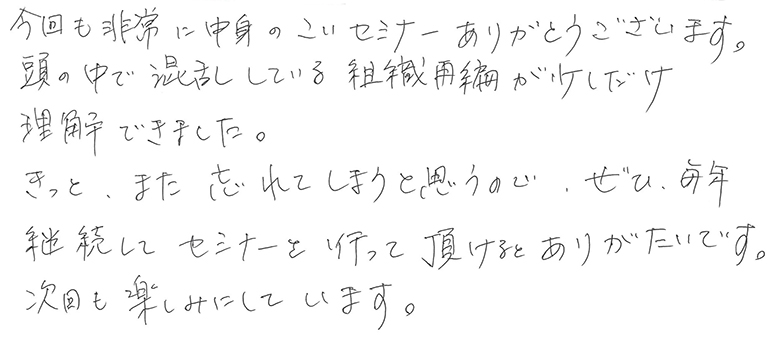 今回も非常に中身のこいセミナーありがとうございます。
頭の中で混乱している組織再編が少しだけ
理解できました。
きっと、また忘れてしまうと思うので、ぜひ、毎年
継続してセミナーを行って頂けるとありがたいです。
次回も楽しみにしています。